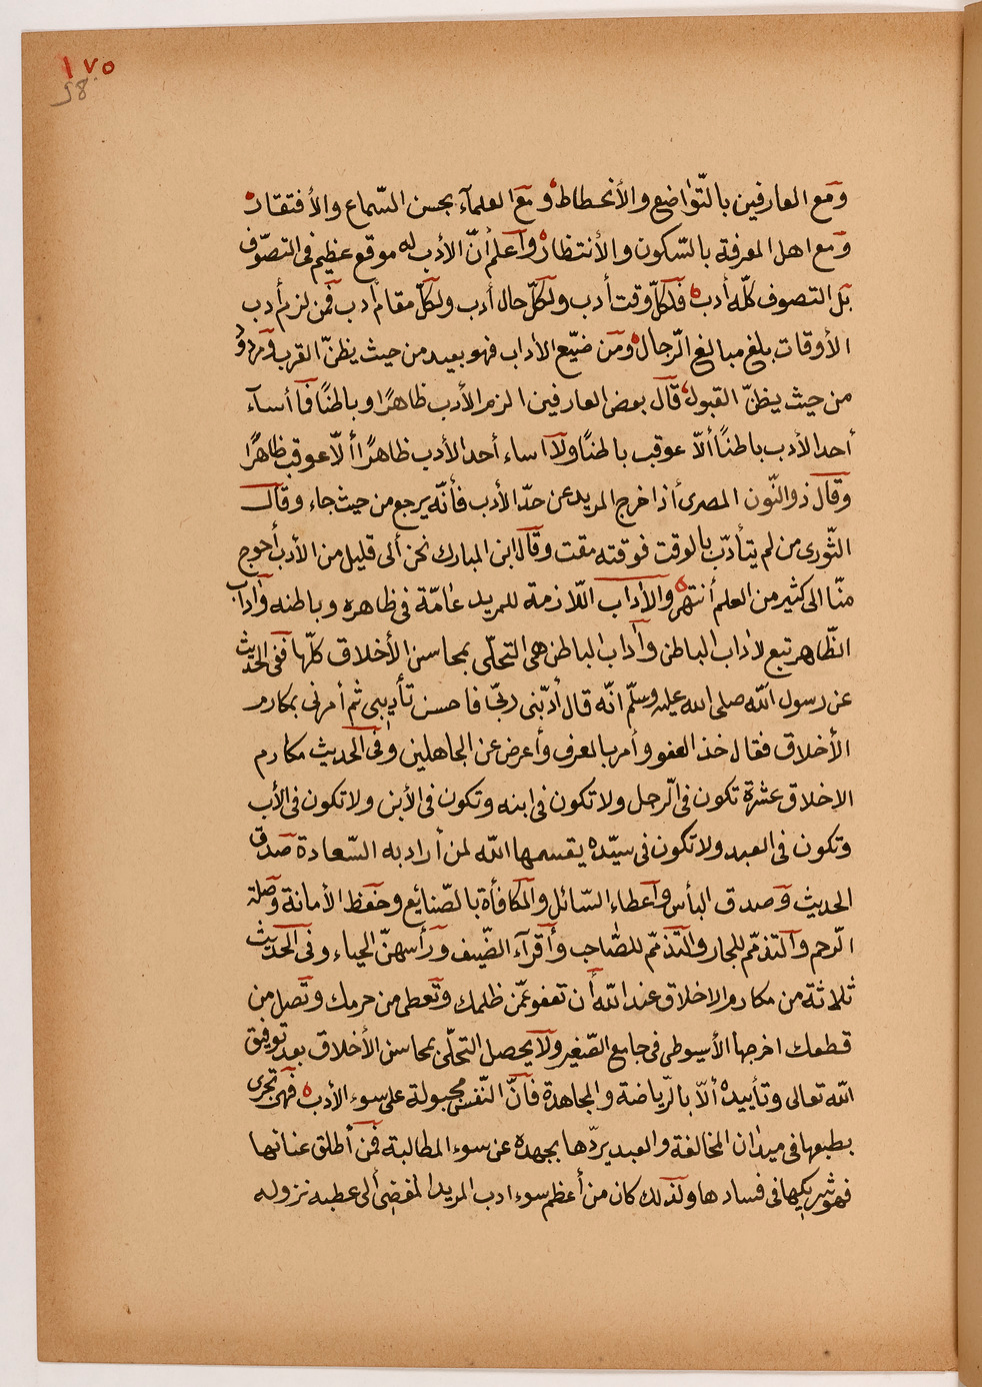 ١٧٥
58
ومع العارفين بالتّواضع والأنحطاط ومع العلمآء بحسن السّماع والأفتقار
ومع اهل المعرفة بالسّكون والأنتظار وأعلم أنّ الأدب له موقع عظيم فى التصوّف
بل التصوف كلّه أدب فلكلّ وقت أدب ولكلّ حال أدب ولكلّ مقام أدب فمن لزم أدب
الأوقات بلغ مبالغ الرّجال ومن ضيّع الأداب فهو بعيد من حيث يظنّ القرب ومردود
من حيث يظنّ القبول قال بعض العارفين الزم الأدب ظاهرًا وباطنًا فما أسآء
أحد الأدب باطنًا ألّا عوقب باطنًا ولا اساء أحد الأدب ظاهرًا ألّا عوقب ظاهرًا
وقال ذوالنّون المصرى أذا خرج المريد عن حدّ الأدب فأنّه يرجع من حيث جاء وقال
الثّورى من لم يتأدّب بالوقت فوقته مقت وقال ابن المبارك نحن ألى قليل من الأدب أحوج
منّا الى كثير من العلم أنتهى والأداب اللّازمة للمريد عامّة فى ظاهره وباطنه وآداب
الظّاهر تبع لأداب الباطن وآداب الباطن هى التحلّى بمحاسن الأخلاق كلّها ففى الحديث
عن رسول الله صلى الله عليه وسلّم انّه قال أدّبنى ربّى فاحسن تأديبى ثم أمرنى بمكارم
الأخلاق فقال خذ العفو وأمر بالعرف وأعرض عن الجاهلين وفى الحديث مكارم
الاخلاق عشرة تكون فى الرّجل ولا تكون فى ابنه وتكون فى الأبن ولا تكون فى الأب
وتكون فى العبد ولا تكون فى سيّده يقسمها الله لمن أراد به السّعادة صدق
الحديث وصدق البأس وأعطاء السّائل والمكافأة بالصّنايع وحفظ الأمانة وصلة
الرّحم والتذمّم للجار والتذمّم للصّاحب وأقرآء الضّيف ورأسهنّ الحياء وفى الحديث
ثلاثة من مكارم الاخلاق عند الله أن تعفو عمّن ظلمك وتعطى من حرمك وتصل من
قطعك اخرجها الأسيوطى فى جامع الصّغير ولا يحصل التحلّى بمحاسن الأخلاق بعد توفيق
الله تعالى وتأييده ألّا بالرّياضة والمجاهدة فأنّ النّفس مجبولة على سوء الأدب فهى تجرى
بطبعها فى ميدان المخالفة والعبد يردّها بجهده عن سوء المطالبة فمن أطلق عنانها
فهو شريكها فى فسادها ولذلك كان من أعظم سوء ادب المريد المفضى ألى عطبه نزوله